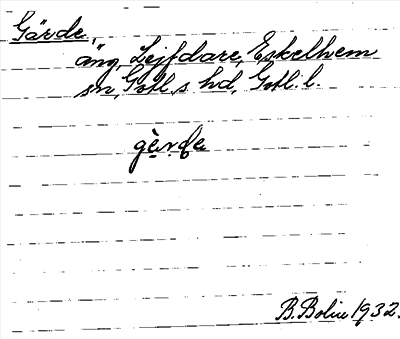 Gärde,
äng, Lejfdare, Eskelhem
sn, Gotl. s. hd, Gotl. l.
gè̤rde
B. Bolin 1932.